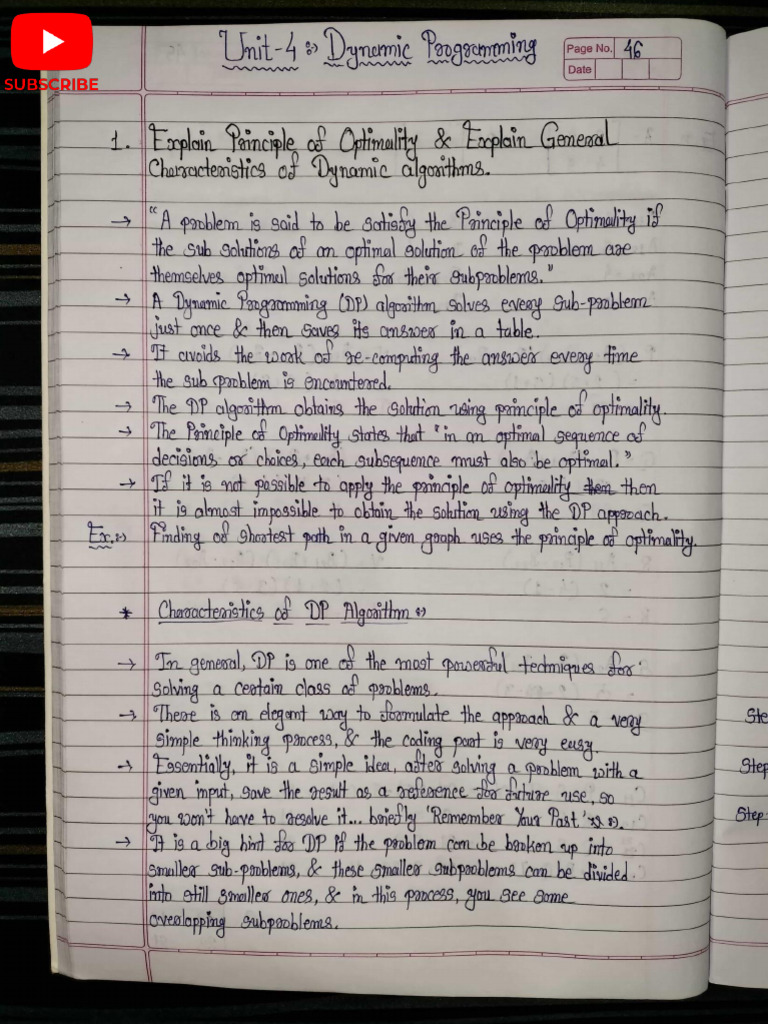 SUBSCRIBE
Unit-4 :- Dynamic Programming
Page No. 46
Date
1. Explain Principle of Optimality & Explain General
Characteristics of Dynamic algorithms.
→ "A problem is said to be satisfy the Principle of Optimality if
the sub solutions of an optimal solution of the problem are
themselves optimal solutions for their subproblems."
→ A Dynamic Programming (DP) algorithm solves every sub-problem
just once & then saves its answer in a table.
→ It avoids the work of re-computing the answer every time
the sub problem is encountered.
→ The DP algorithm obtains the solution using principle of optimality.
→ The Principle of Optimality states that "in an optimal sequence of
decisions or choices, each subsequence must also be optimal."
→ If it is not possible to apply the principle of optimality then
it is almost impossible to obtain the solution using the DP approach.
Ex. :- Finding of shortest path in a given graph uses the principle of optimality.
* Characteristics of DP Algorithm :-
→ In general, DP is one of the most powerful techniques for
solving a certain class of problems.
→ There is an elegant way to formulate the approach & a very
simple thinking process, & the coding part is very easy.
→ Essentially, it is a simple idea, after solving a problem with a
given input, save the result as a reference for future use, so
you won't have to resolve it... briefly 'Remember Your Past'
→ It is a big hint for DP if the problem can be broken up into
smaller sub-problems, & these smaller subproblems can be divided
into still smaller ones, & in this process, you see some
overlapping subproblems.
Ste
Step
Step